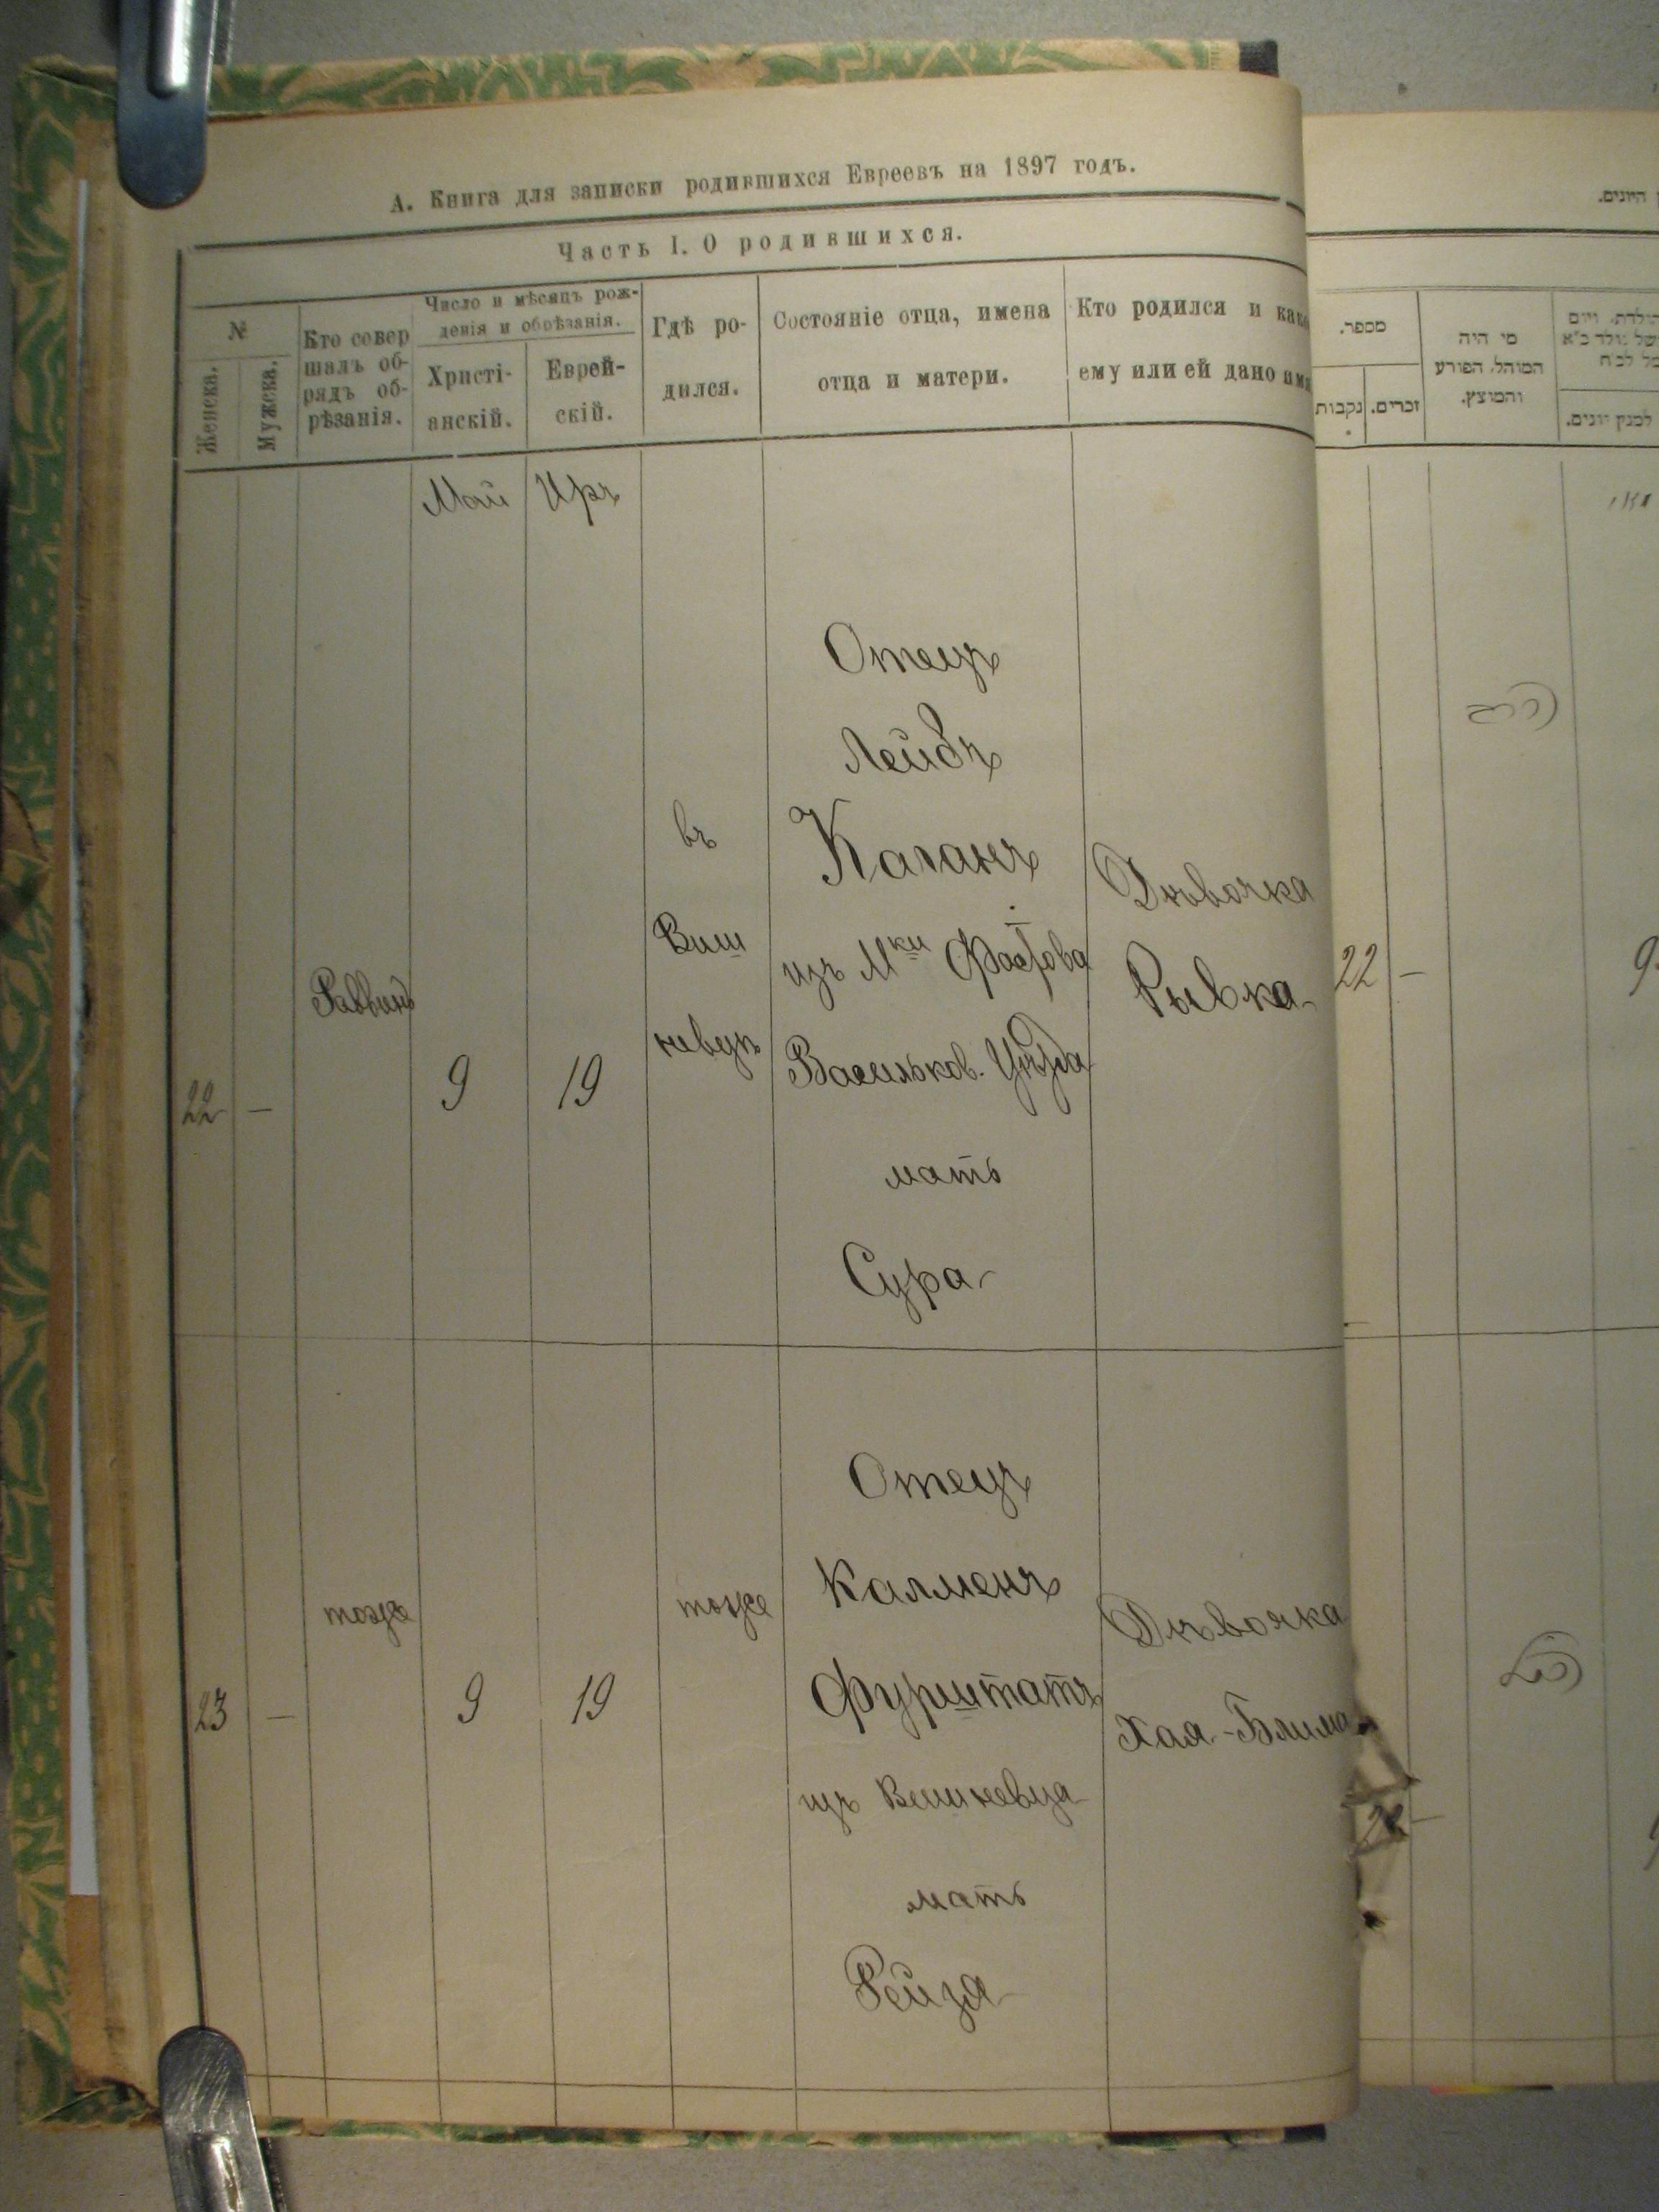 А. Книга для записки родившихся Евреевъ на 1897 годъ.
Часть I. О родившихся.
№
Женска.
Мужска.
Кто совер
шалъ об-
рядъ об-
рѣзанія.
Число и мѣсяцъ рож-
денія и обрѣзанія.
Христі-
анскій.
Еврей-
скій.
Гдѣ ро-
дился.
Состояніе отца, имена
отца и матери.
Кто родился и како
ему или ей дано имя
Май
Иръ
22
—
Раввинъ
9
19
въ
Виш
невцѣ
Отецъ
Лейбъ
Каганъ
изъ Мки Фастова
Васильков. Уѣзда
мать
Сура
Дѣвочка
Рывка
23
—
тоже
9
19
тоже
Отецъ
Калменъ
Фурштатъ
изъ Вишневца
мать
Рейзя
Дѣвочка
Хая-Блима
היונים.
מספר.
נקבות
זכרים.
מי היה
המוהל, הפורע
והמוצץ.
למנין יונים.
22 —
9